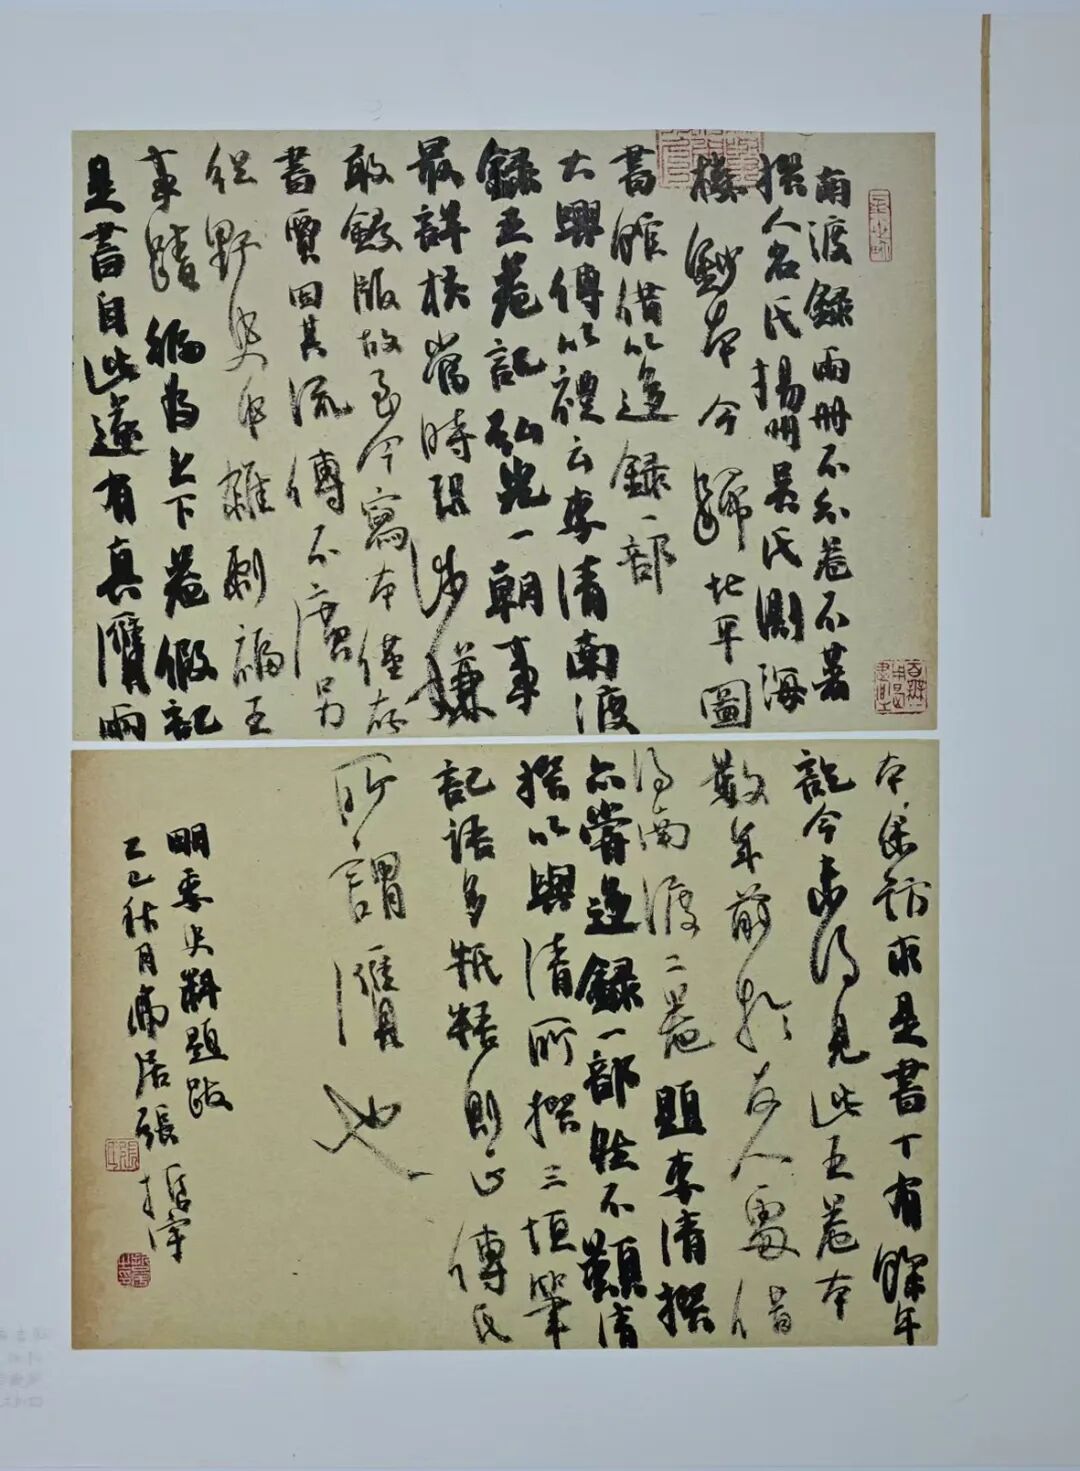 南渡錄兩冊不分卷不著
撰人名氏揚州吳氏測海
樓鈔本今歸北平圖
書館借以迻錄一部
大興傅以禮云李清南渡
錄五卷記弘光一朝事
最詳核當時限涉嫌
敢鋟版故至今寫本僅存
書賈因其流傳不廣另
從野史中雜剟福王
事蹟編為上下卷假記
是書自此遂有真贋兩
本余訪求是書丁有餘年
訖今未得見此五卷本
數年前於友人處借
得南渡二卷題李清撰
亦嘗迻錄一部然不類清
撰以與清所撰三垣筆
記語多牴牾則正傅氏
所謂贋也
明季史料題跋
乙巳秋月
居張